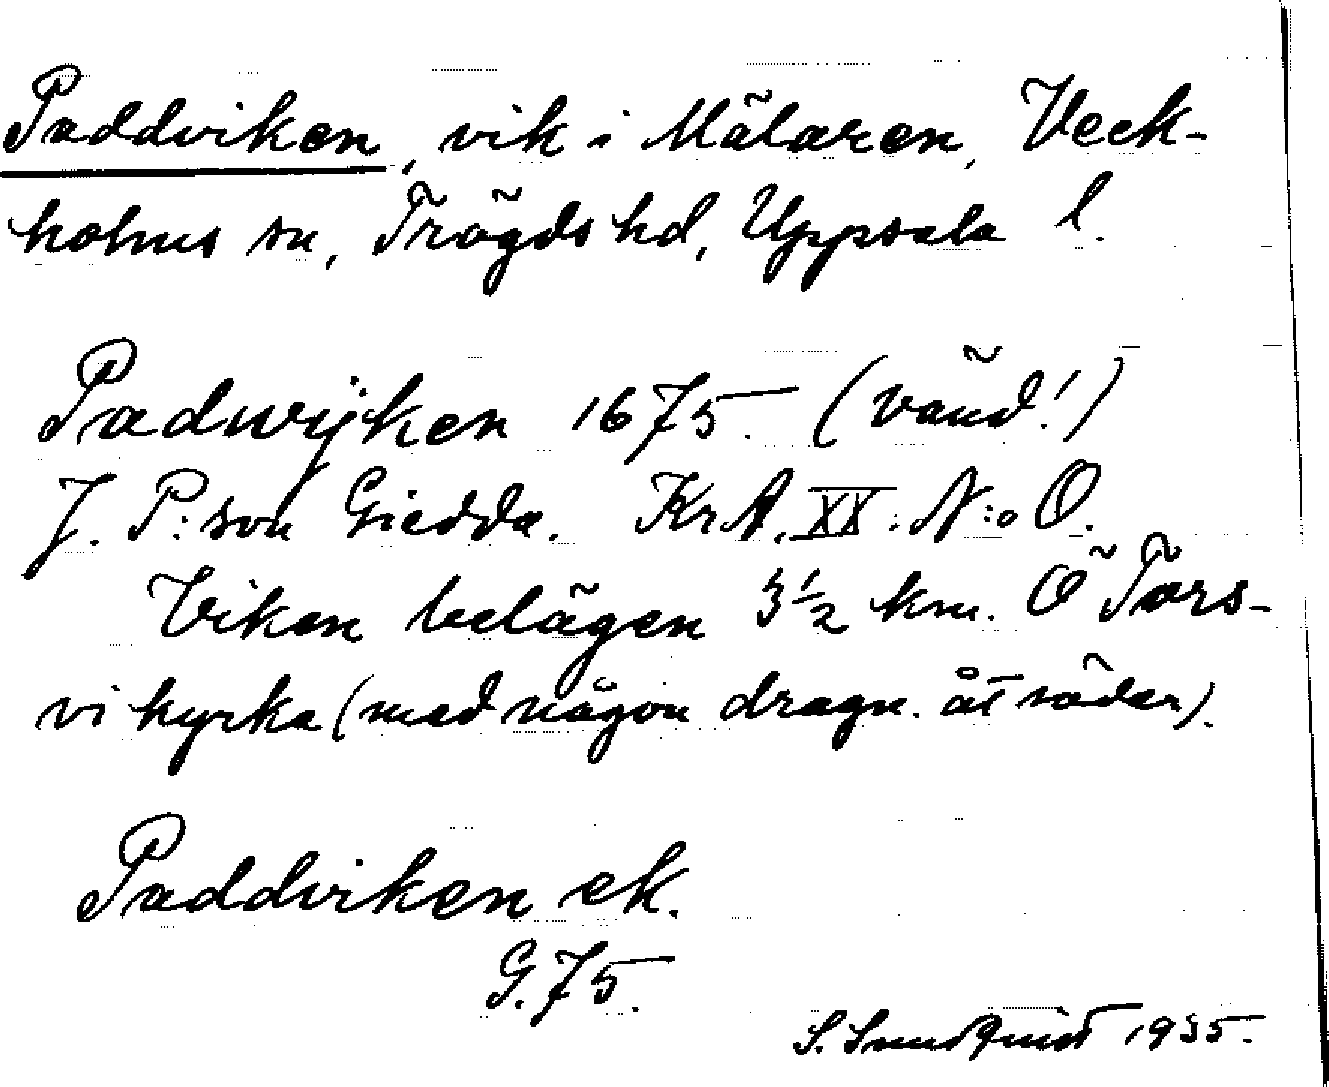 Paddviken, vik i Mälaren, Veck-
holms sn, Trögds hd, Uppsala l.
Padwijken 1675. (vänd!)
J. P:son Giedda. KrA. XX. N:o O.
Viken belägen 3½ km. Ö Tors-
vi kyrka (med någon dragn. åt söder).
Paddviken ek.
G. 75.
S. Sundquist 1935.